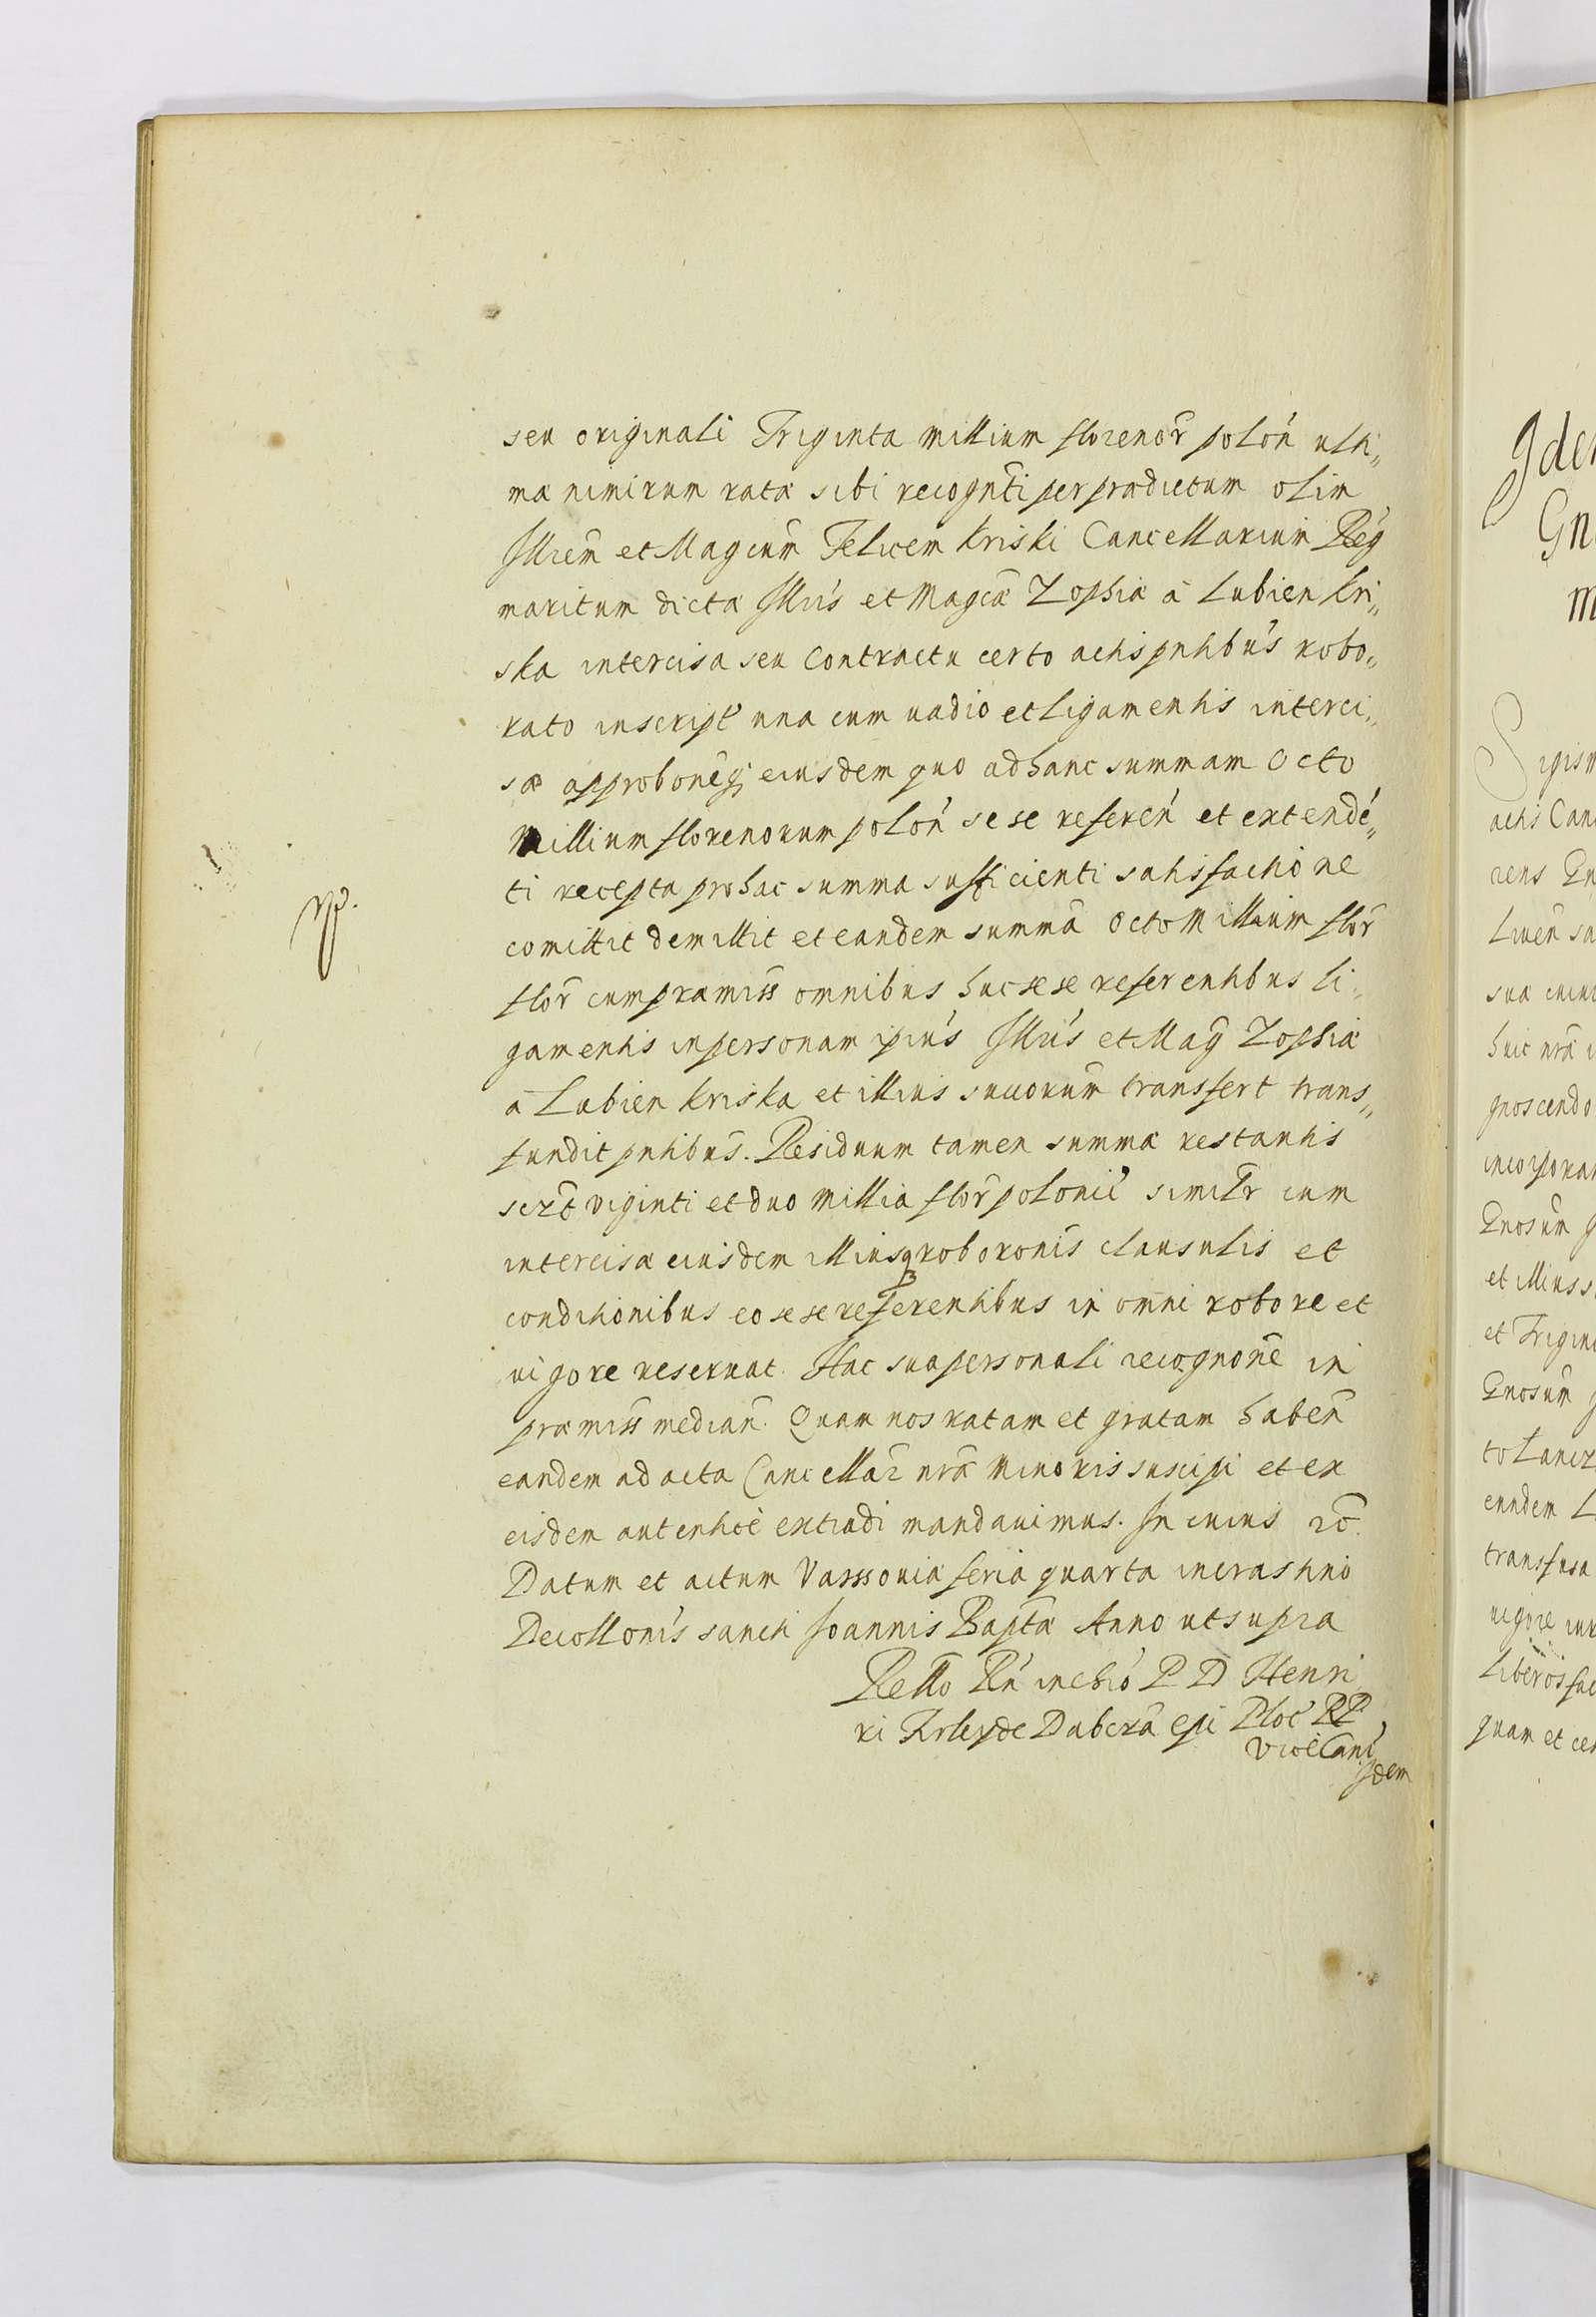 seu originali Triginta millium florenor̃ polon̄ ulti„
mæ nimirum ratæ sibi recognt̃i per prædictum olim
Illrem̃ et Magcum̃ Felicem Kriski Cancellarium Reg̃
maritum dictæ Illris̃ et Magcæ Zophiæ à Lubien Kri„
ska intercisa seu Contractu certo actis pntibus̃ robo„
rato inscript̃ una cum uadio et Ligamentis interci„
sæ approboneq̃ eiusdem quo ad hanc summam Octo
Millium florenorum polon̄ sese referen̄ et extendē„
ti recepta pro hac summa sufficienti satisfactione
comittit demittit et eandem summã Octo Millium flor̃
flor̃ cum præmiss omnibus huc sese referentibus li„
gamentis in personam ipius̃ Illris̃ et Mag̃ Zophiæ
à Lubien Kriska et illius succorum̃ transfert trans„
fundit pntibus̃. Residuum tamen summæ restantis
sczt̃ viginti et duo Millia flor̃ polonic̃ similtr̃ cum
intercisæ eiusdem illiusq roboronis̃ clausulis et
conditionibus eo sese referentibus in omni robore et
uigore reseruat. Hac sua personali recognonẽ̴ in
præmiss median̄. Quam nos ratam et gratam haben̄
eandem ad acta Cancellar̃ nræ̃ Minoris suscipi et ex
eisdem autentice extradi mandauimus. In cuius rõ
Datum et actum Varssouiæ feria quarta in crastino
Decollonis̃ sancti Joannis Baptæ̃ Anno ut supra
Rello Rn̄ in chrõ P D Henri
ci Firley de Dabcrã epi Ploc̃ RP
Vice Canc̃
Idem